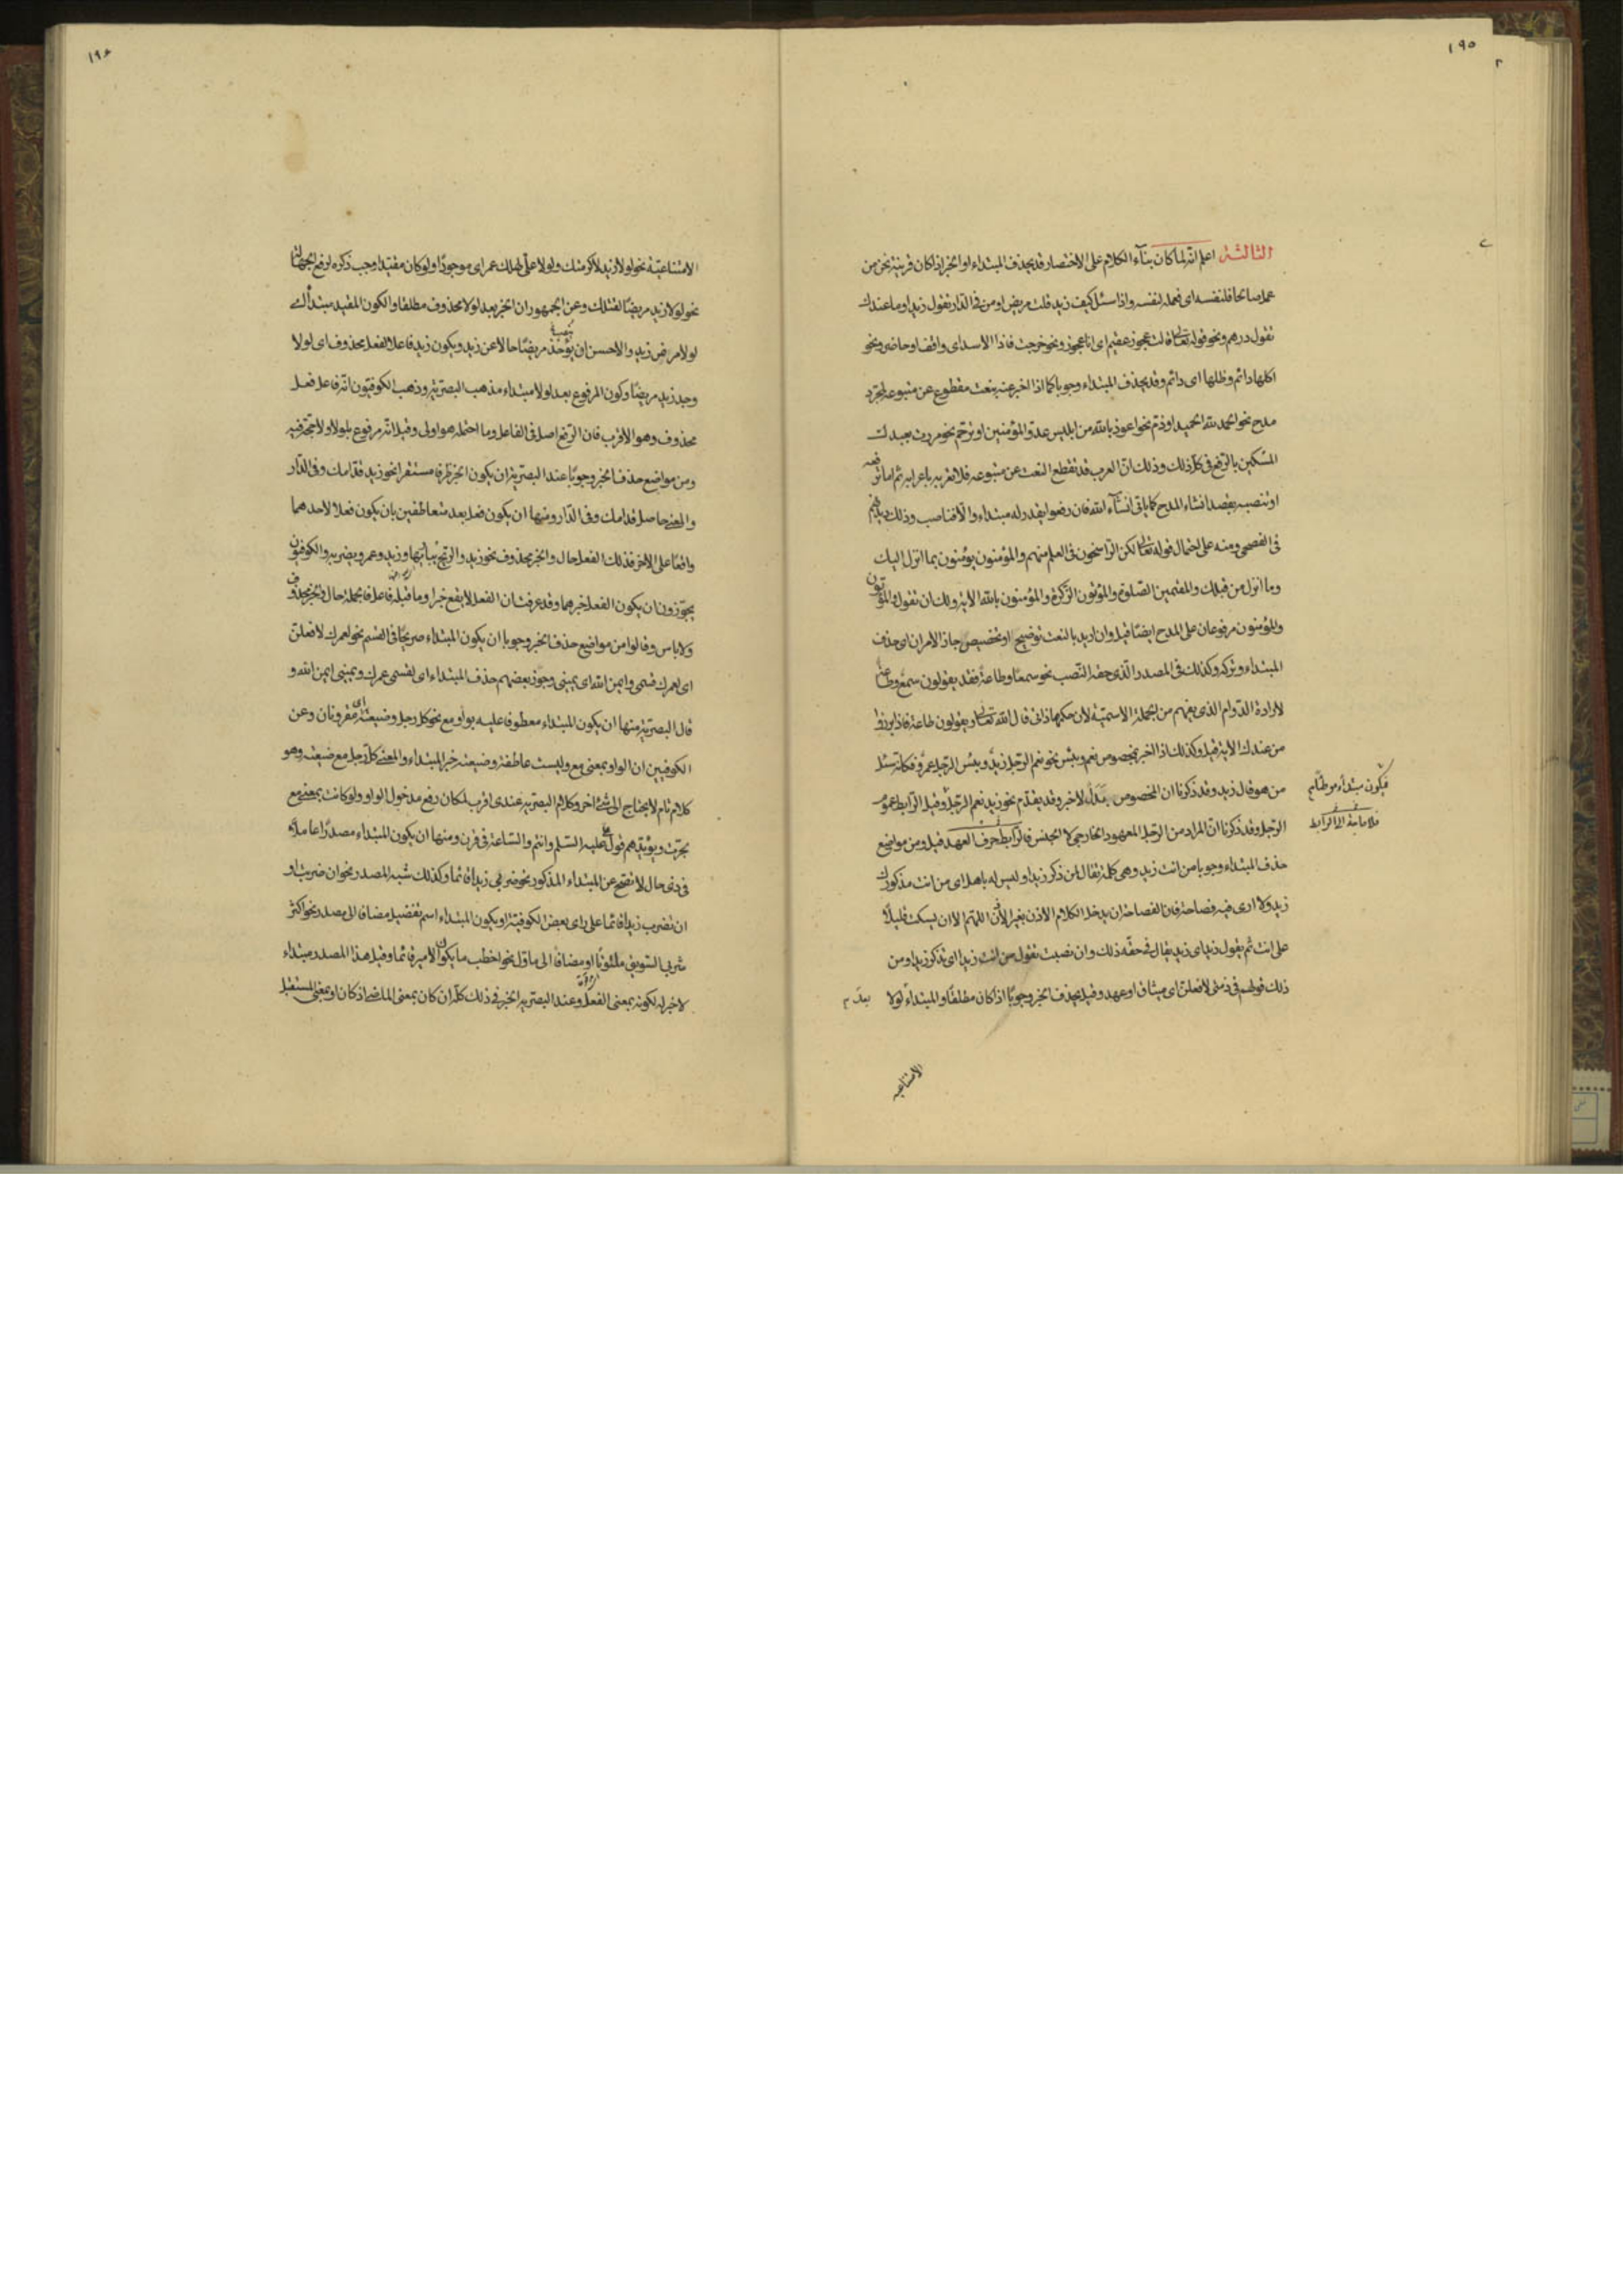 ١٩٥
الثالثة اعلم انه لما كان بناء الكلام على الاختصار قد يحذف المبتداء او الخبر اذا كان قرينة نحو من
عمل صالحا فلنفسه اى فعمله لنفسه واذا سئل كيف زيد قلت مريض او من فى الدار تقول زيد او ما عندك
تقول درهم ونحو قوله تعالى قالت عجوز عقيم اى انا عجوز ونحو خرجت فاذا الاسد اى واقف او حاضر ونحو
اكلها دائم وظلها اى دائم وقد يحذف المبتداء وجوبا كما اذا اخبر عنه بنعت مقطوع عن متبوعه لمجرد
مدح نحو الحمد لله الحميد او ذم نحو اعوذ بالله من ابليس عدو المؤمنين او ترحم نحو مررت بعبدك
المسكين بالرفع فى كل ذلك وذلك ان العرب قد تقطع النعت عن متبوعه فلا تعربه باعرابه ثم اما ترفعه
او تنصبه بقصد انشاء المدح كما ياتى انشاء الله فان رفعوا يقدر له مبتداء والا فناصب وذلك
فى الفصحى ومنه على احتمال قوله تعالى لكن الراسخون فى العلم منهم والمؤمنون يؤمنون بما انزل اليك
وما انزل من قبلك والمقيمين الصلوة والمؤتون الزكوة والمؤمنون بالله الاية ولك ان تقول المؤتون
والمؤمنون مرفوعان على المدح ايضا قيل وان اريد بالنعت توضيح او تخصيص جاز الامران اى حذف
المبتداء وتركه وكذلك فى المصدر الذى حقه النصب نحو سمعا وطاعة فقد يقولون سمع وطاعة
لارادة الدوام الذى يفهم من الجملة الاسمية لان حكمها ذاتى قال الله تعالى ويقولون طاعة فاذا برزوا
من عندك الاية قيل وكذلك اذا اخبر بمخصوص نعم وبئس نحو نعم الرجل زيد وبئس الرجل عمرو فكانه سئل
من هو قال زيد وقد ذكرنا ان المخصوص لاخبر وقد يقدم نحو زيد نعم الرجل وقيل الرابط عموم
الرجل وقد ذكرنا ان المراد من الرجل المعهود الخارجى لا الجنس فالرابط حرف العهد قيل ومن مواضع
حذف المبتداء وجوبا من انت زيد وهى كلمة تقال لمن ذكر زيدا وليس له باهل اى من انت مذكورك
زيد ولا ارى فيه فصاحة فان الفصاحة ان يدخل الكلام الاذن بغير اللهم الا ان يسكت قليلا
على انت ثم يقول زيد اى زيد يقال فى حقه ذلك وان نصبت تقول من انت زيدا اى تذكر زيدا ومن
ذلك قولهم فى ذمتى لافعلن اى ميثاق او عهد وقيل يحذف الخبر وجوبا اذا كان مطلقا والمبتداء لولا
فيكون مبتدأ
فلا حاجة الى الرابط
بعد
الامتناعية
١٩٦
الامتناعية نحو لولا زيد لاكرمتك ولولا على لهلك عمر اى موجود ولو كان مقيدا وجب ذكره لرفع الجهالة
نحو لولا زيد مريضا لقتلك وعن الجمهور ان الخبر بعد لولا محذوف مطلقا والكون المقيد مبتدأ اى
لولا مرض زيد والاحسن ان يؤخذ مريضا حالا عن زيد ويكون زيد فاعلا لفعل محذوف اى لولا
وجد زيد مريضا وكون المرفوع بعد لولا مبتداء مذهب البصرية وذهب الكوفيون انه فاعل فعل
محذوف وهو الاقرب فان الرفع اصل فى الفاعل وما احتمله هو اولى وقيل انه مرفوع بلولا ولا
ومن مواضع حذف الخبر وجوبا عند البصرية ان يكون الخبر ظرفا مستقرا نحو زيد قدامك وفى الدار
والمعنى حاصل قدامك وفى الدار ومنها ان يكون فعل بعد متعاطفين بان يكون فعلا لاحدهما
واقعا على الاخر فذلك الفعل حال والخبر محذوف نحو زيد والريح يباريها وزيد وعمرو يضربه والكوفيون
يجوزون ان يكون الفعل خبرهما وقد عرفت ان الفعل لا يقع خبرا وما قبله فاعل فالجملة حال والخبر محذوف
ولا باس وقالوا من مواضع حذف الخبر وجوبا ان يكون المبتداء صريحا فى القسم نحو لعمرك لافعلن
اى لعمرك قسمى وايمن الله اى يمينى وجوز بعضهم حذف المبتداء اى لقسمى عمرك ويمينى ايمن الله و
قال البصرية منها ان يكون المبتداء معطوفا عليه بواو مع نحو كل رجل وضيعته اى مقرونان وعن
الكوفيين ان الواو بمعنى مع وليست عاطفة وضيعته خبر المبتداء والمعنى كل رجل مع ضيعته وهو
كلام تام لا يحتاج الى شئ اخر وكلام البصرية عندى اقرب لمكان رفع مدخول الواو ولو كانت بمعنى مع
لجرت ويؤيدهم قول على عليه السلم وانتم والساعة فى قرن ومنها ان يكون المبتداء مصدرا عاملا
فى ذى حال لا تصح عن المبتداء المذكور نحو ضربى زيدا قائما وكذلك شبه المصدر نحو ان ضربت او
ان تضرب زيدا قائما على راى بعض الكوفية او يكون المبتداء اسم تفضيل مضافا الى مصدر نحو اكثر
شربى السويق ملتوتا او مضافا الى ماول نحو اخطب ما يكون الامير قائما وقيل هذا المصدر مبتداء
لا خبر له لكونه بمعنى الفعل وعند البصرية الخبر فى ذلك كله ان كان بمعنى الماضى اذ كان او بمعنى المستقبل